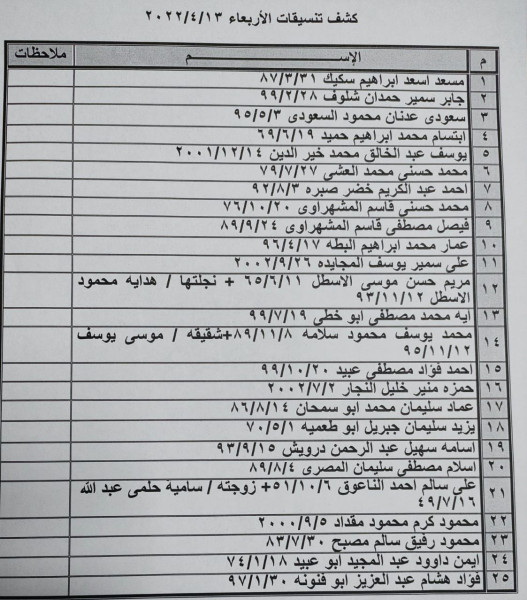 كشف تنسيقات الأربعاء ٢٠٢٢/٤/١٣
م الإســـم ملاحظات
١ مسعد اسعد ابراهيم سكيك ٨٧/٣/٣١
٢ جابر سمير حمدان شلوف ٩٩/٢/٢٨
٣ سعودى عدنان محمود السعودى ٩٥/٥/٣
٤ ابتسام محمد ابراهيم حميد ٦٩/٦/١٩
٥ يوسف عبد الخالق محمد خير الدين ٢٠٠١/١٢/١٤
٦ محمد حسنى محمد العشى ٧٩/٧/٢٧
٧ احمد عبد الكريم خضر صبره ٩٢/٨/٣
٨ محمد حسنى قاسم المشهراوى ٧٦/١٠/٢٠
٩ فيصل مصطفى قاسم المشهراوى ٨٩/٩/٢٤
١٠ عمار محمد ابراهيم البطه ٩٦/٤/١٧
١١ على سمير يوسف المجايده ٢٠٠٢/٩/٢٦
١٢ مريم حسن موسى الاسطل ٦٥/٦/١١ + نجلتها / هدايه محمود
الاسطل ٩٣/١١/١٢
١٣ ايه محمد مصطفى ابو خطى ٩٩/٧/١٩
١٤ محمد يوسف محمود سلامه ٨٩/١١/٨+شقيقه / موسى يوسف
٩٥/١١/١٢
١٥ احمد فؤاد مصطفى عبيد ٩٩/١٠/٢٠
١٦ حمزه منير خليل النجار ٢٠٠٢/٧/٢
١٧ عماد سليمان محمد ابو سمحان ٨٦/٨/١٤
١٨ يزيد سليمان جبريل ابو طعميه ٧٠/٥/١
١٩ اسامه سهيل عبد الرحمن درويش ٩٣/٩/١٥
٢٠ اسلام مصطفى سليمان المصرى ٨٩/٨/٤
٢١ على سالم احمد الناعوق ٥١/١٠/٦+ زوجته / سامية حلمى عبد الله
٤٩/٧/١٦
٢٢ محمود كرم محمود مقداد ٢٠٠٠/٩/٥
٢٣ محمود رفيق سالم مصبح ٨٣/٧/٣٠
٢٤ ايمن داوود عبد المجيد ابو عبيد ٧٤/١/١٨
٢٥ فؤاد هشام عبد العزيز ابو فنونه ٩٧/١/٣٠